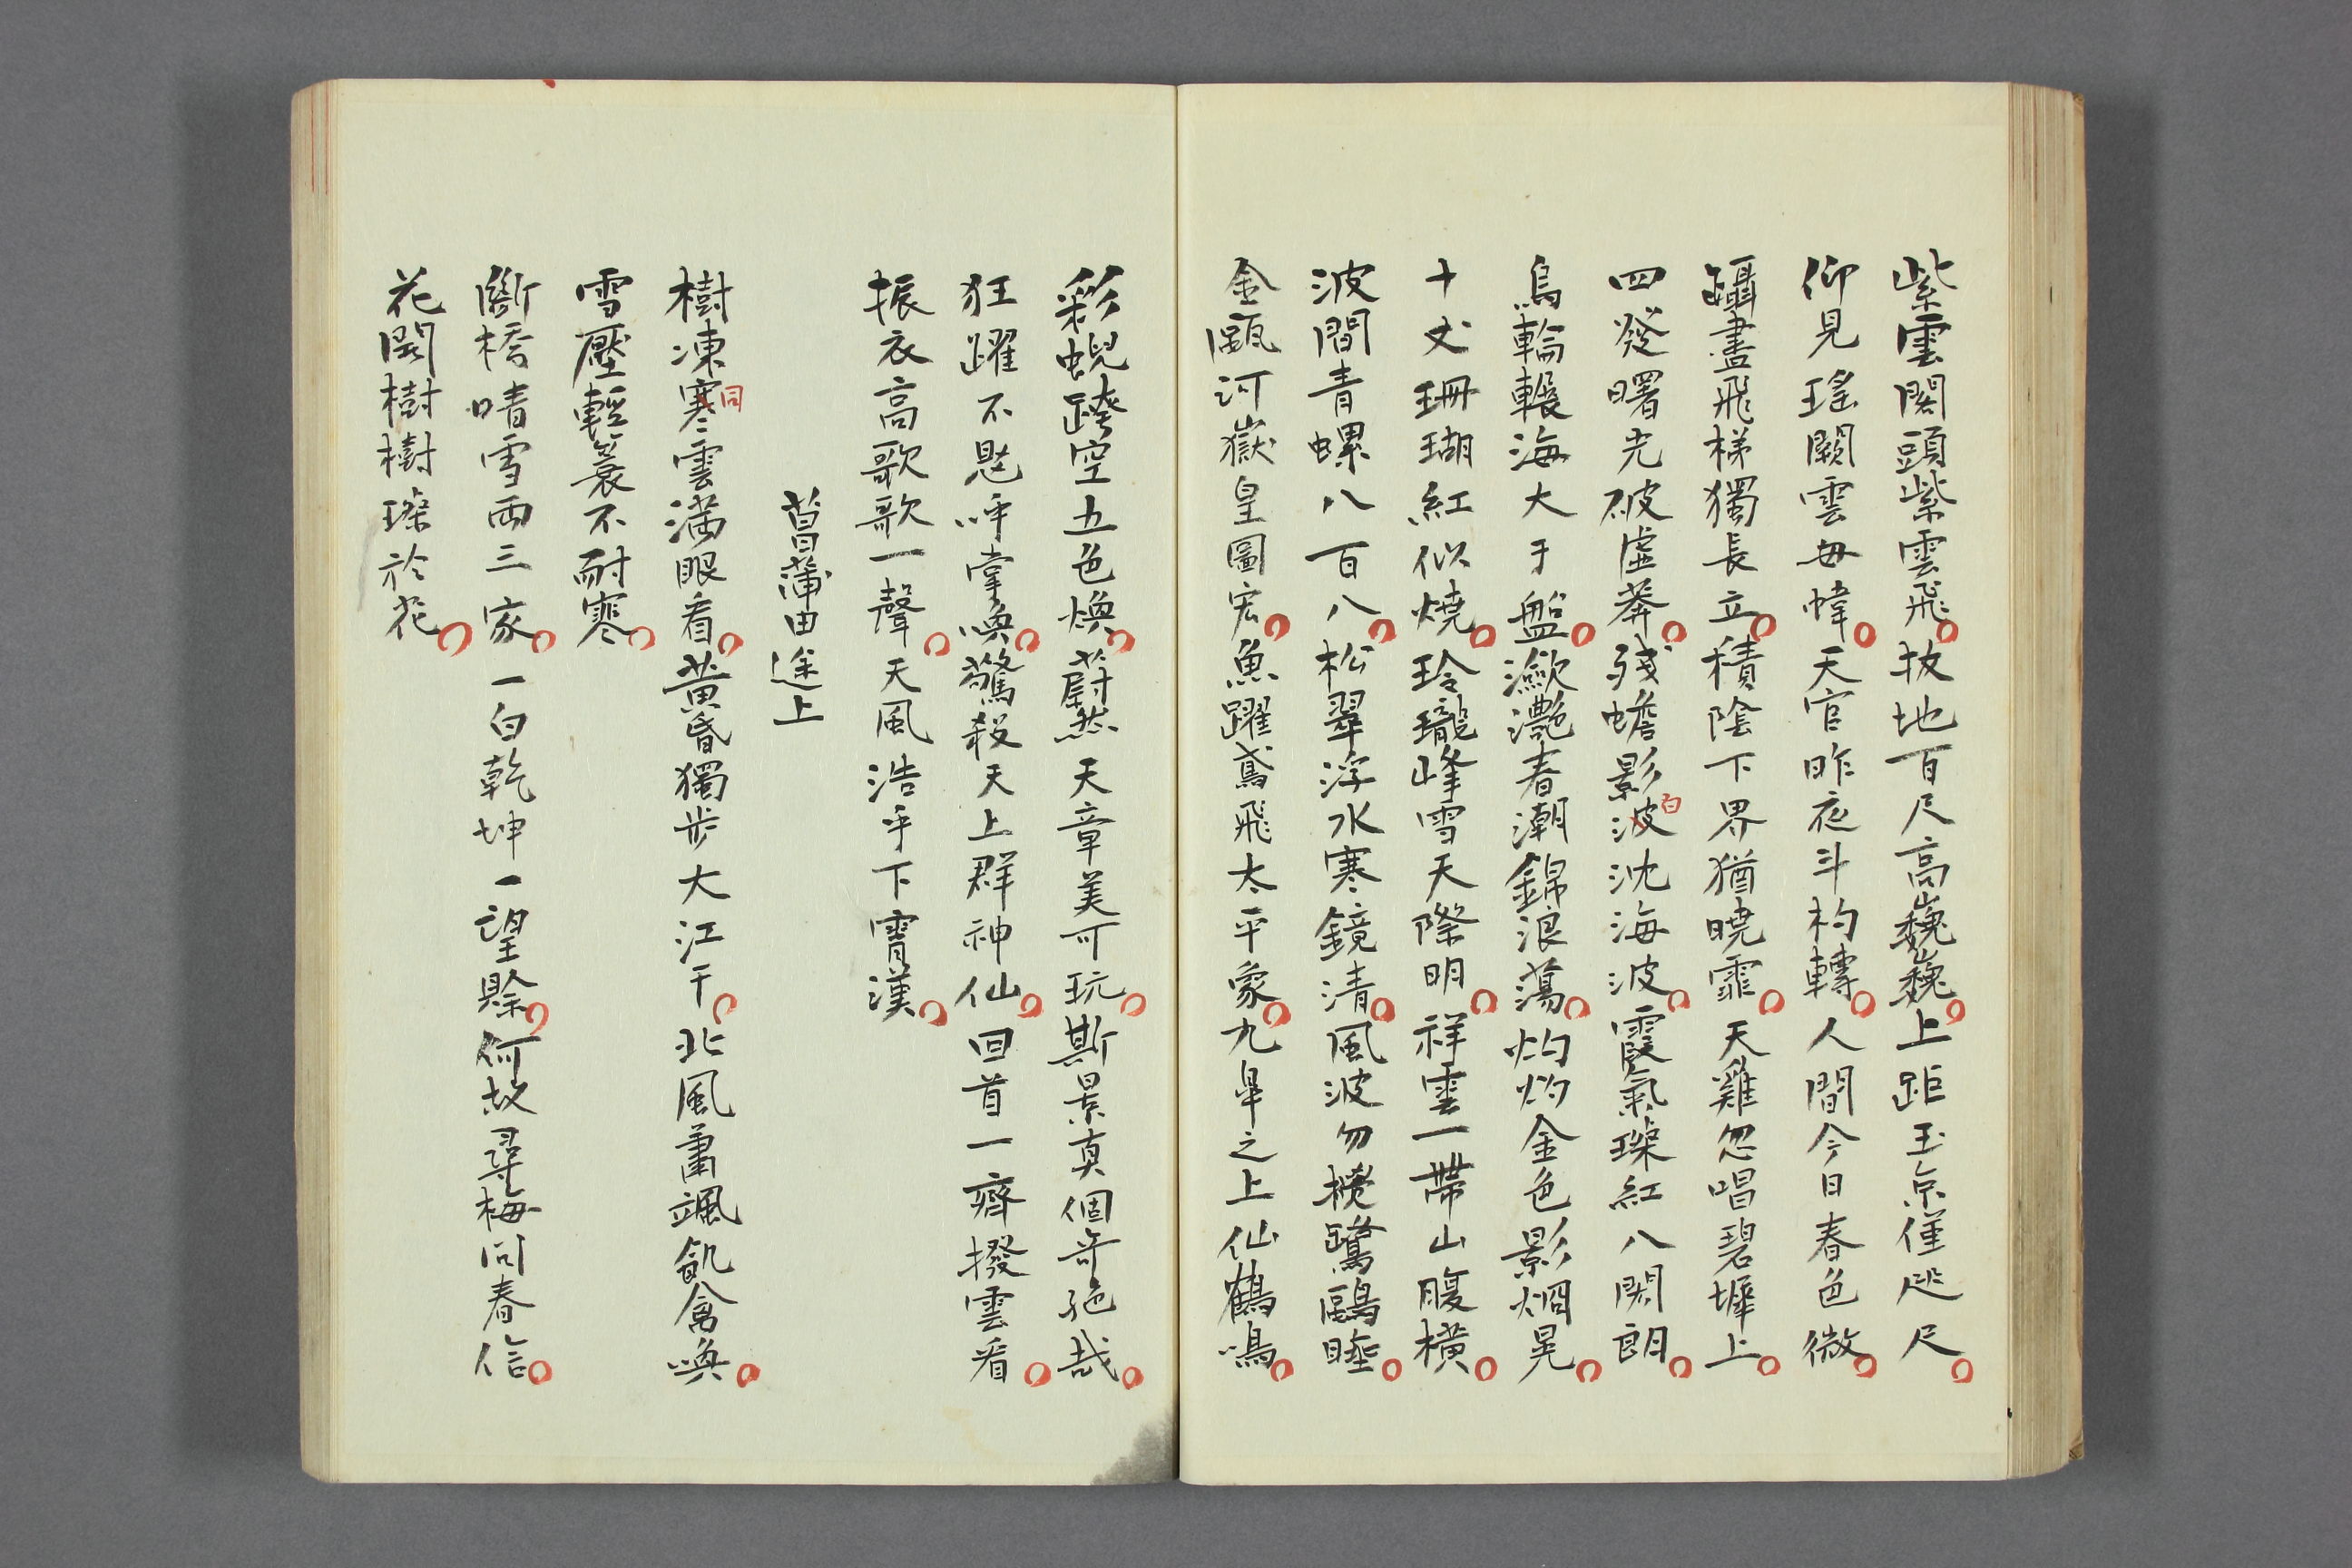 紫雲関頭紫雲飛拔地百尺高巍巍上距玉京僅咫尺
仰見瑤闕雲每幃天官昨夜斗杓轉人間今日春色微
躡盡飛梯獨長立積陰下界猶曉霏天雞忽唱碧墀上
四發曙光破虛莽殘蟾影波白沈海波霞氣璨紅八関朗
烏輪輾海大于盤瀲灔春潮錦浪蕩灼灼金色影烟晃
十丈珊瑚紅似燒玲瓏峰雪天際明祥雲一帶山腹橫
波間青螺八百八松翠浮水寒鏡清風波勿攪鷺鷗睡
金甌河嶽皇圖宏魚躍鳶飛太平象九皐之上仙鶴鳴
彩蜺跨空五色煥蔚然天章美可玩斯景真個奇絕哉
狂躍不愁呼掌喚驚殺天上群神仙回首一齊撥雲看
振衣高歌歌一聲天風浩乎下霄漢
菖蒲田途上
樹凍寒同雲滿眼看黃昏獨步大江干北風蕭颯飢禽喚
雪壓輕簑不耐寒
斷橋晴雪兩三家一白乾坤一望賒何故尋梅问春信
花開樹樹璨於花